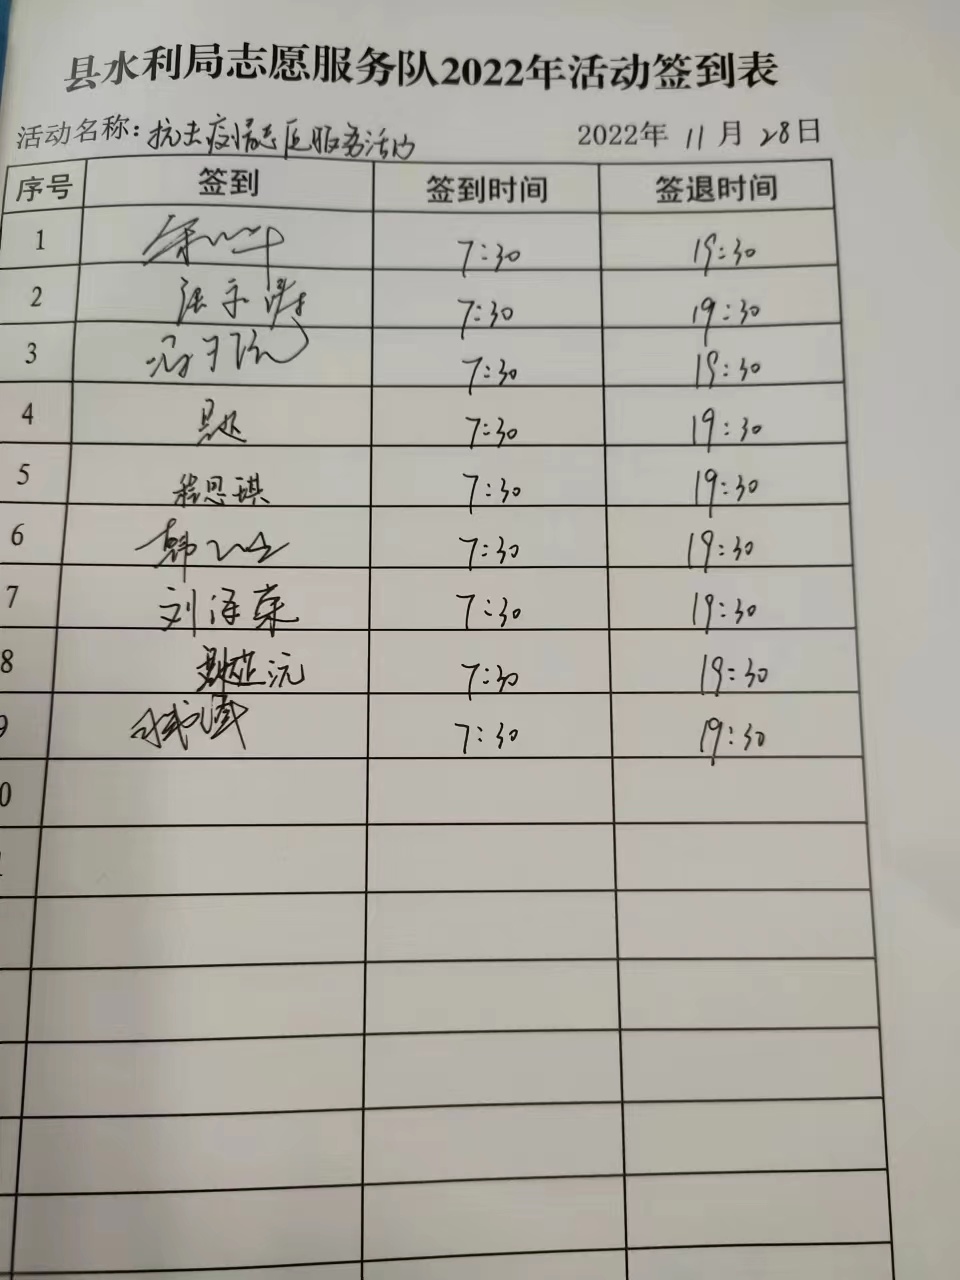 县水利局志愿服务队2022年活动签到表
活动名称：抗击疫情志愿服务活动 2022年 11月 28日
序号 签到 签到时间 签退时间
1 7:30 19:30
2 7:30 19:30
3 7:30 19:30
4 7:30 19:30
5 程思琪 7:30 19:30
6 韩 7:30 19:30
7 刘泽荣 7:30 19:30
8 7:30 19:30
9 7:30 19:30
0